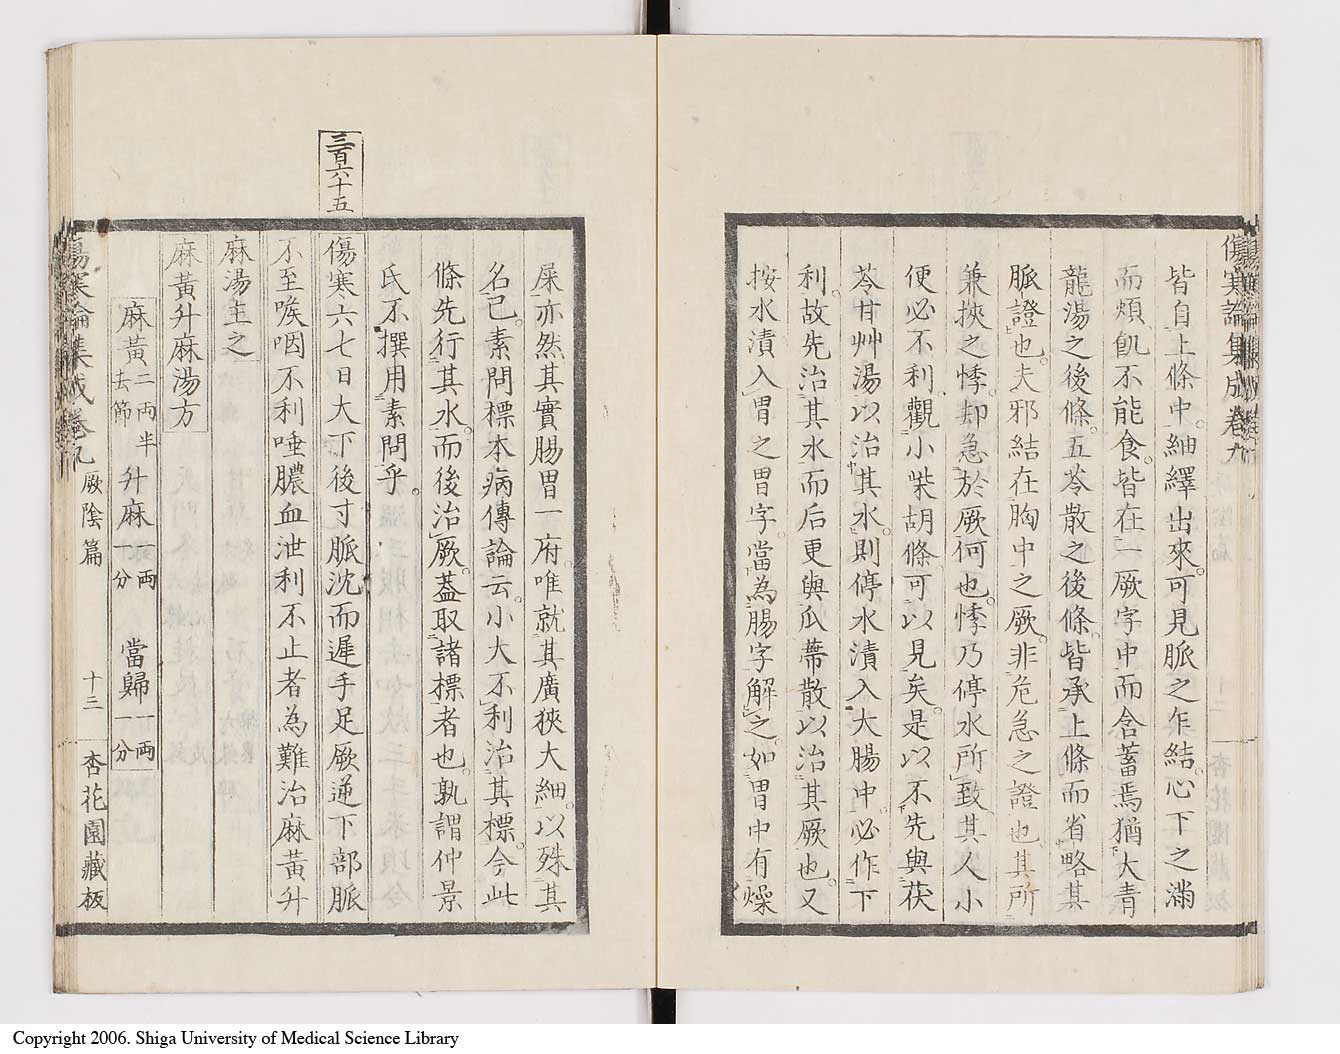 傷寒論集成卷九
皆自上條中紬繹出來可見脈之乍結心下之滿
而煩飢不能食皆在一厥字中而含蓄焉猶大青
龍湯之後條五苓散之後條皆承上條而省略其
脈證也夫邪結在胸中之厥非危急之證也其所
兼挾之悸却急於厥何也悸乃停水所致其人小
便必不利觀小柴胡條可以見矣是以不先與茯
苓甘艸湯以治其水則停水漬入大腸中必作下
利故先治其水而后更與瓜蒂散以治其厥也又
按水漬入胃之胃字當為腸字解之如胃中有燥
屎亦然其實腸胃一府唯就其廣狹大細以殊其
名已素問標本病傳論云小大不利治其標今此
條先行其水而後治厥蓋取諸標者也孰謂仲景
氏不撰用素問乎
三百六十五
傷寒六七日大下後寸脈沈而遲手足厥逆下部脈
不至喉咽不利唾膿血泄利不止者為難治麻黃升
麻湯主之
麻黃升麻湯方
麻黃二兩半去節 升麻一兩一分 當歸一兩一分
傷寒論集成卷九 厥陰篇 十三 杏花園藏板
Copyright 2006. Shiga University of Medical Science Library